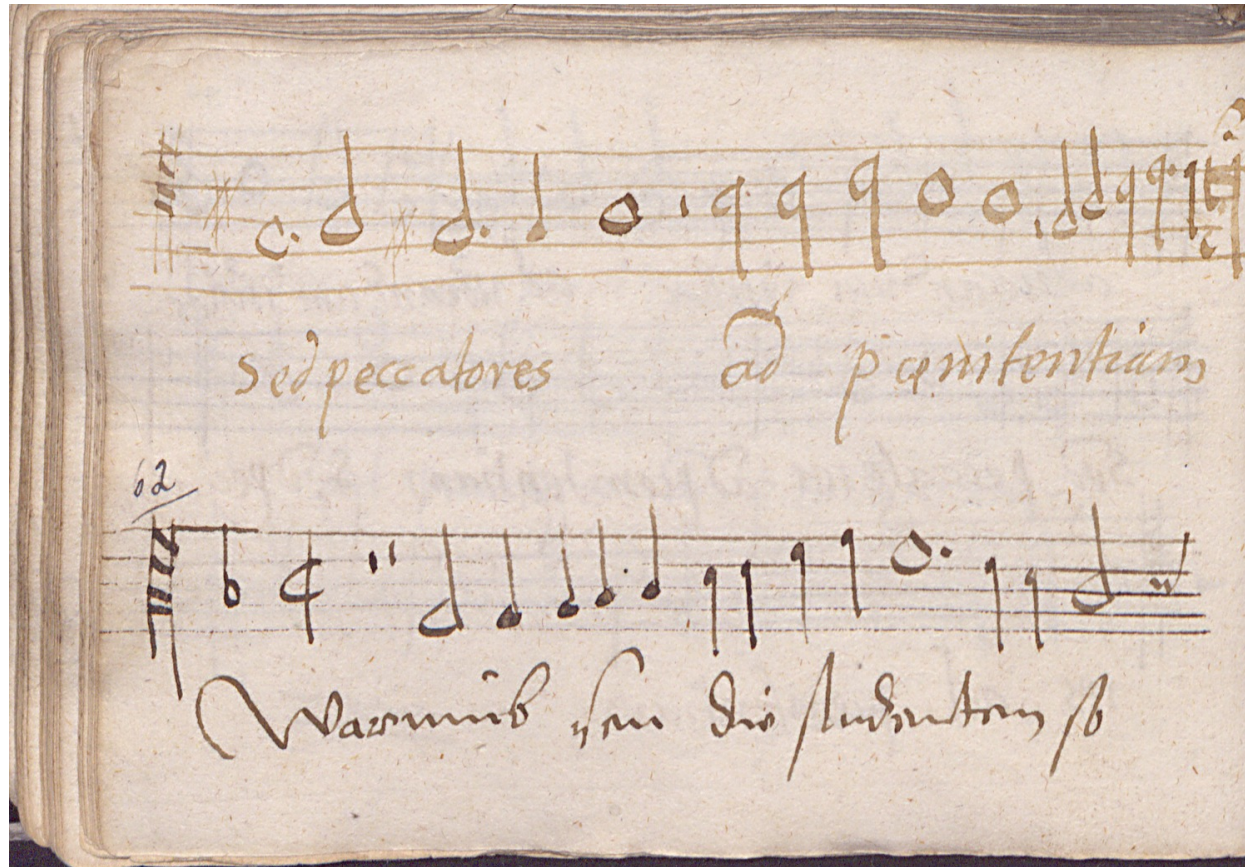 Sed peccatores ad pœnitentium
62
Warumb sen die studenten so